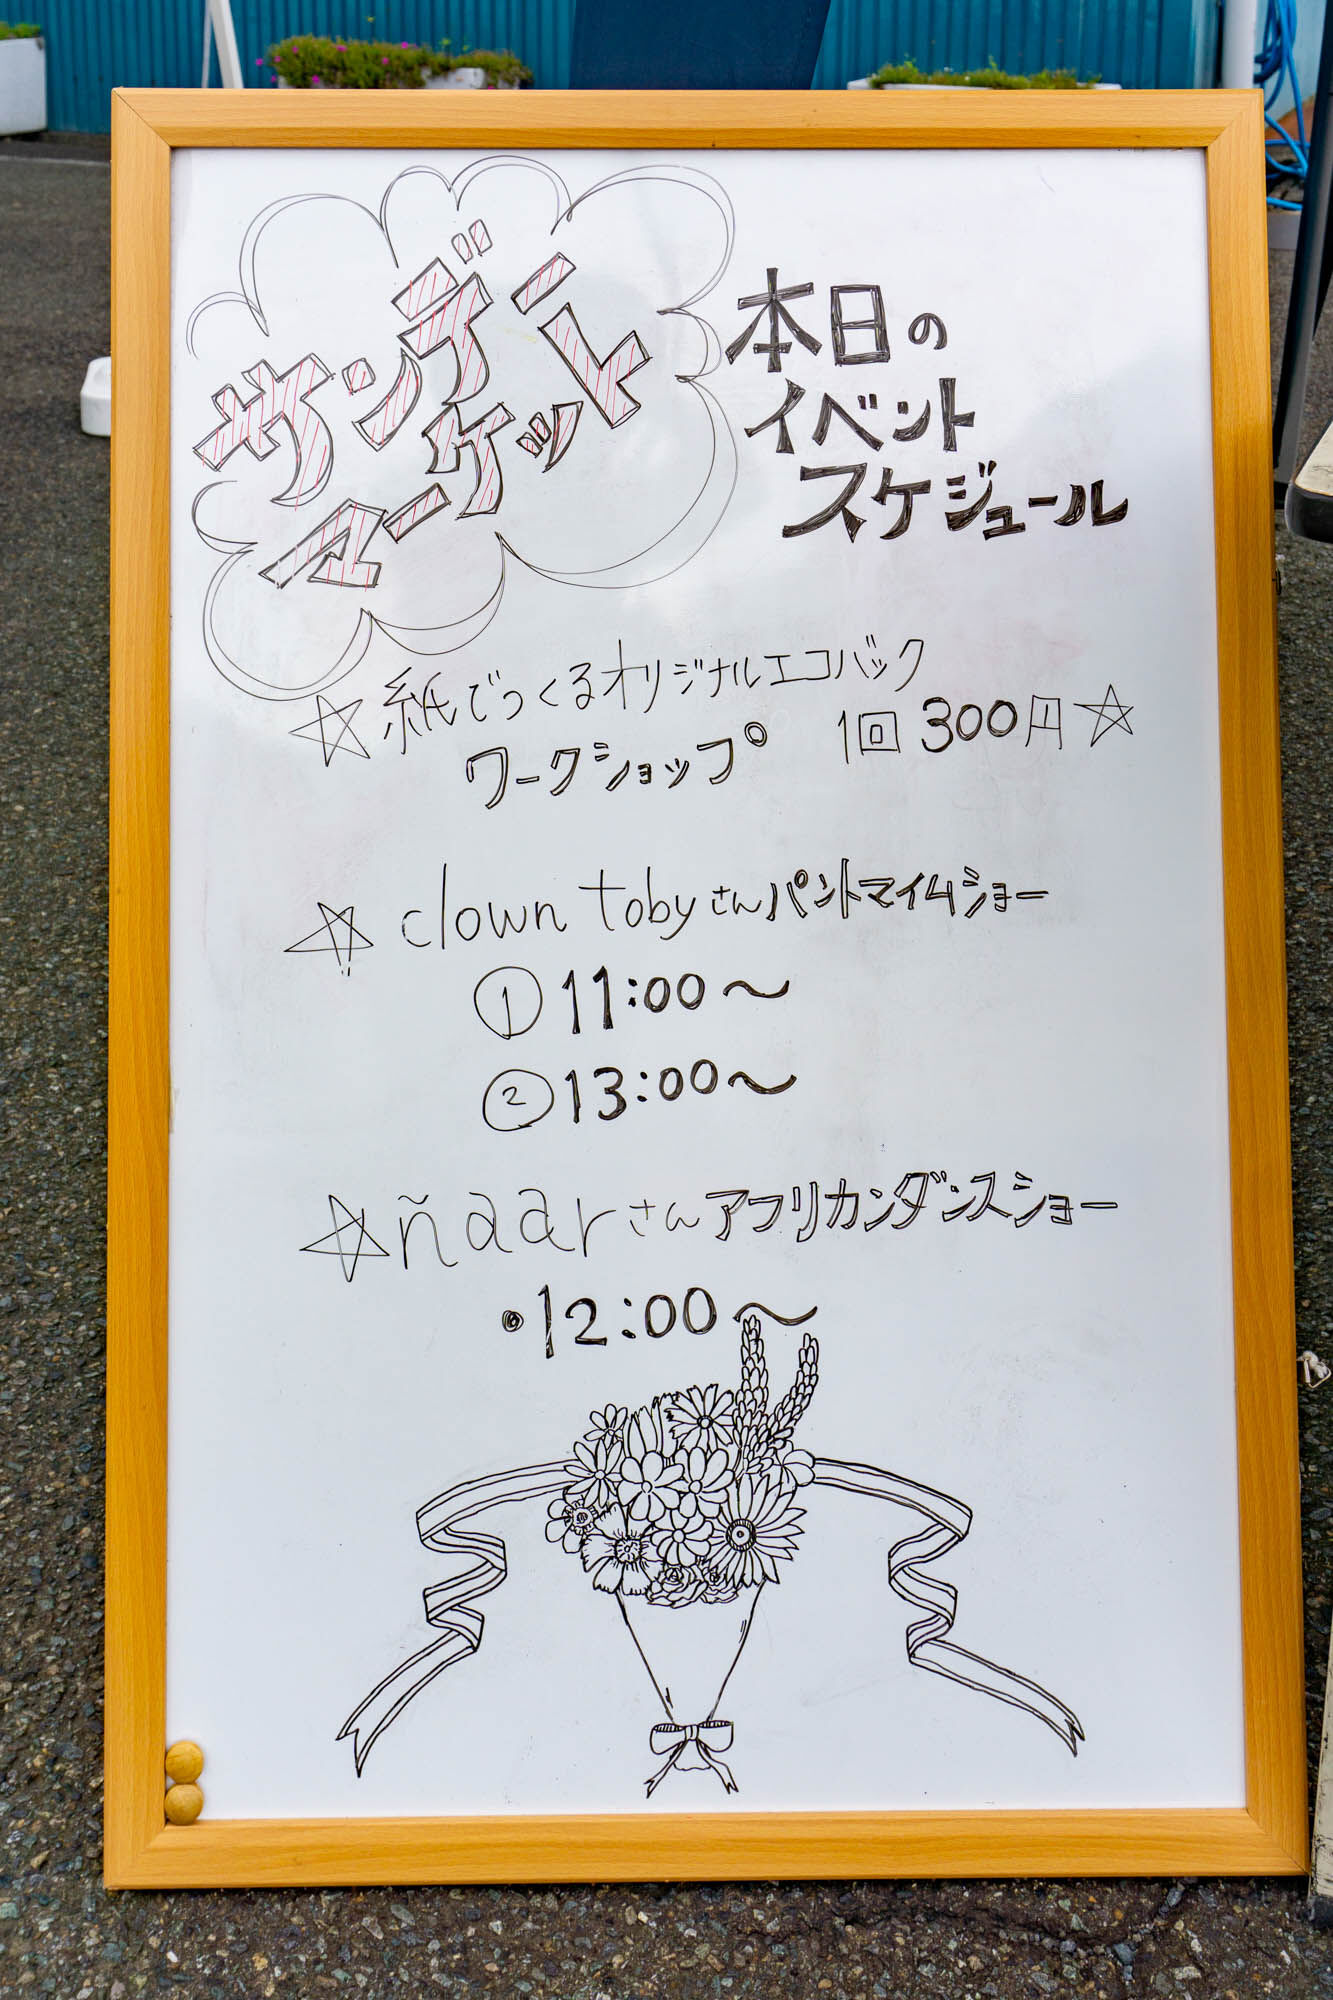 サンデー
マーケット
本日の
イベント
スケジュール
☆紙でつくるオリジナルエコバック
ワークショップ 1回300円☆
☆clown tobyさんパントマイムショー
①11:00〜
②13:00〜
☆ñaarさんアフリカンダンスショー
・12:00〜